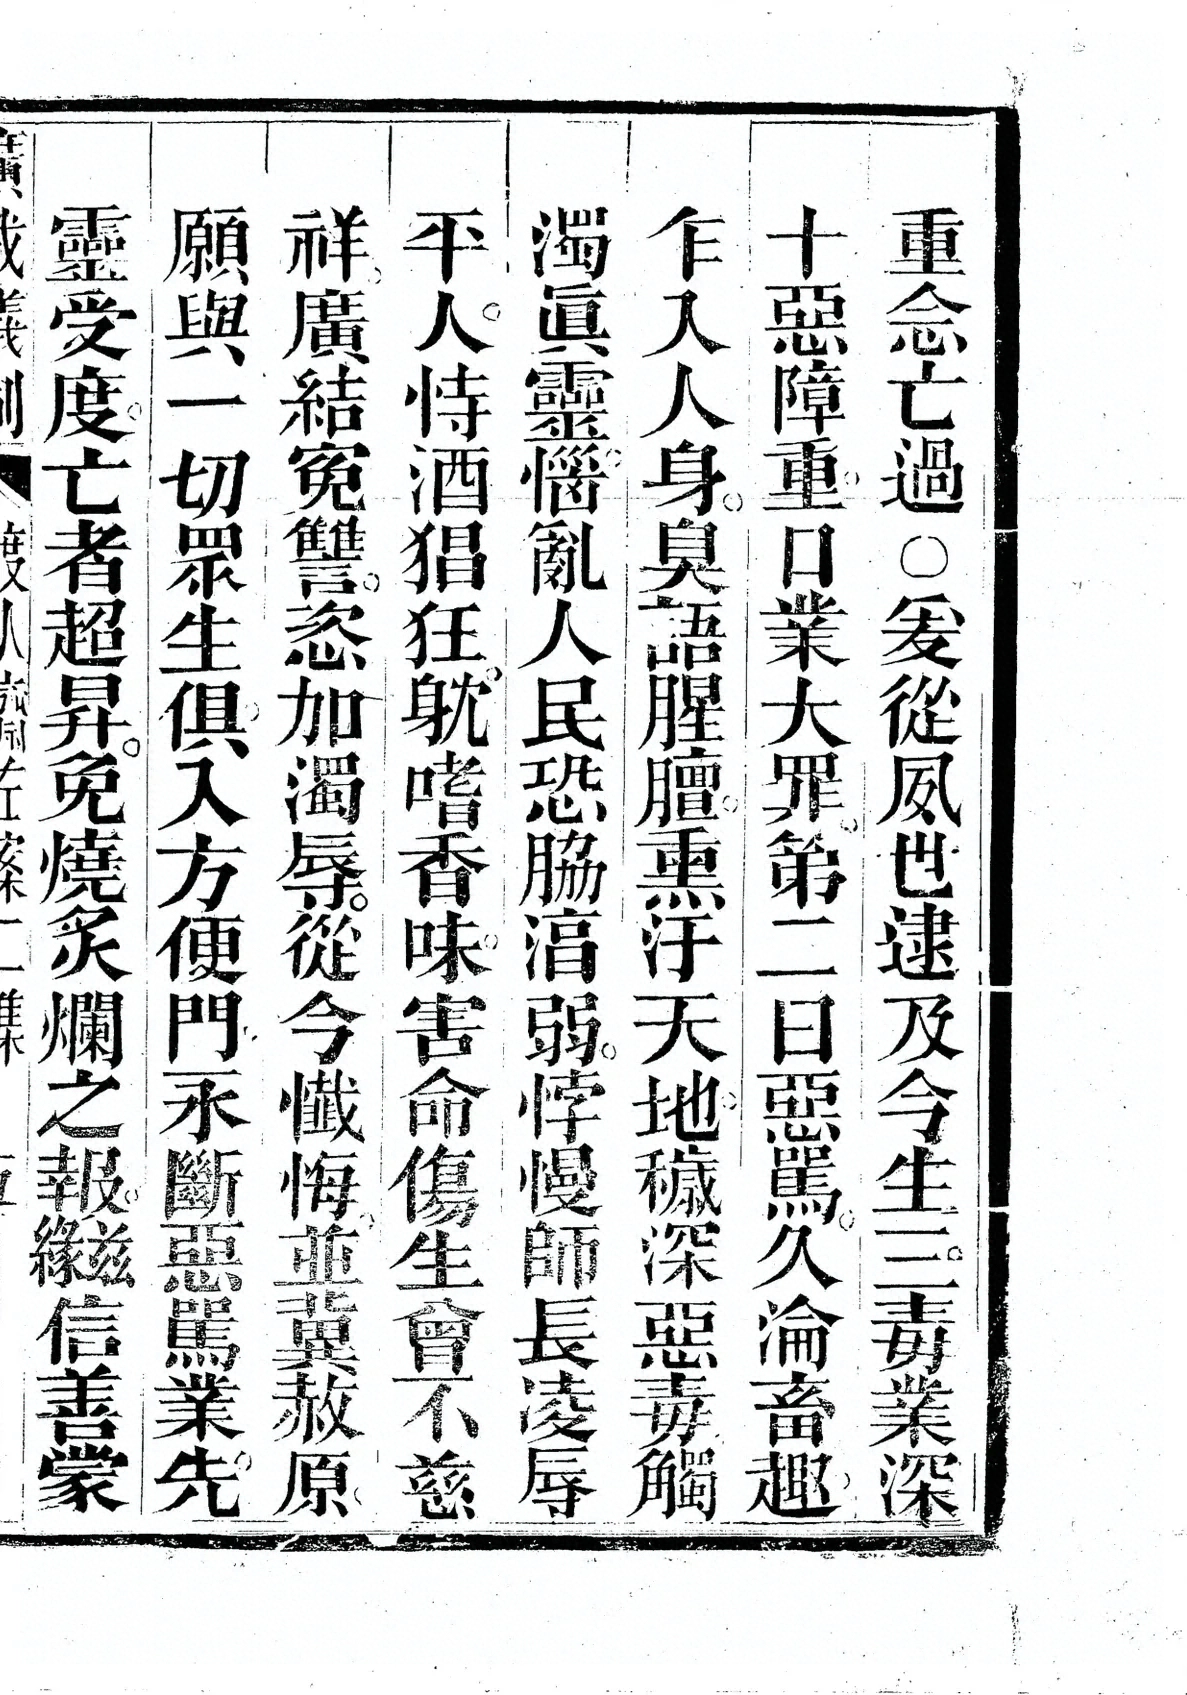 重念亡過○爰從夙世逮及今生三毒業深
十惡障重口業大罪第二曰惡駡久淪畜趣
乍入人身臭語腥膻熏汙天地穢深惡毒觸
濁眞靈惱亂人民恐脇湻弱悖慢師長凌辱
平人恃酒猖狂躭嗜香味害命傷生曾不慈
祥廣結寃讐恣加濁辱從今懺悔並冀赦原
願與一切眾生俱入方便門永斷惡駡業先
靈受度亡者超昇免燒炙爛之報茲緣信善蒙